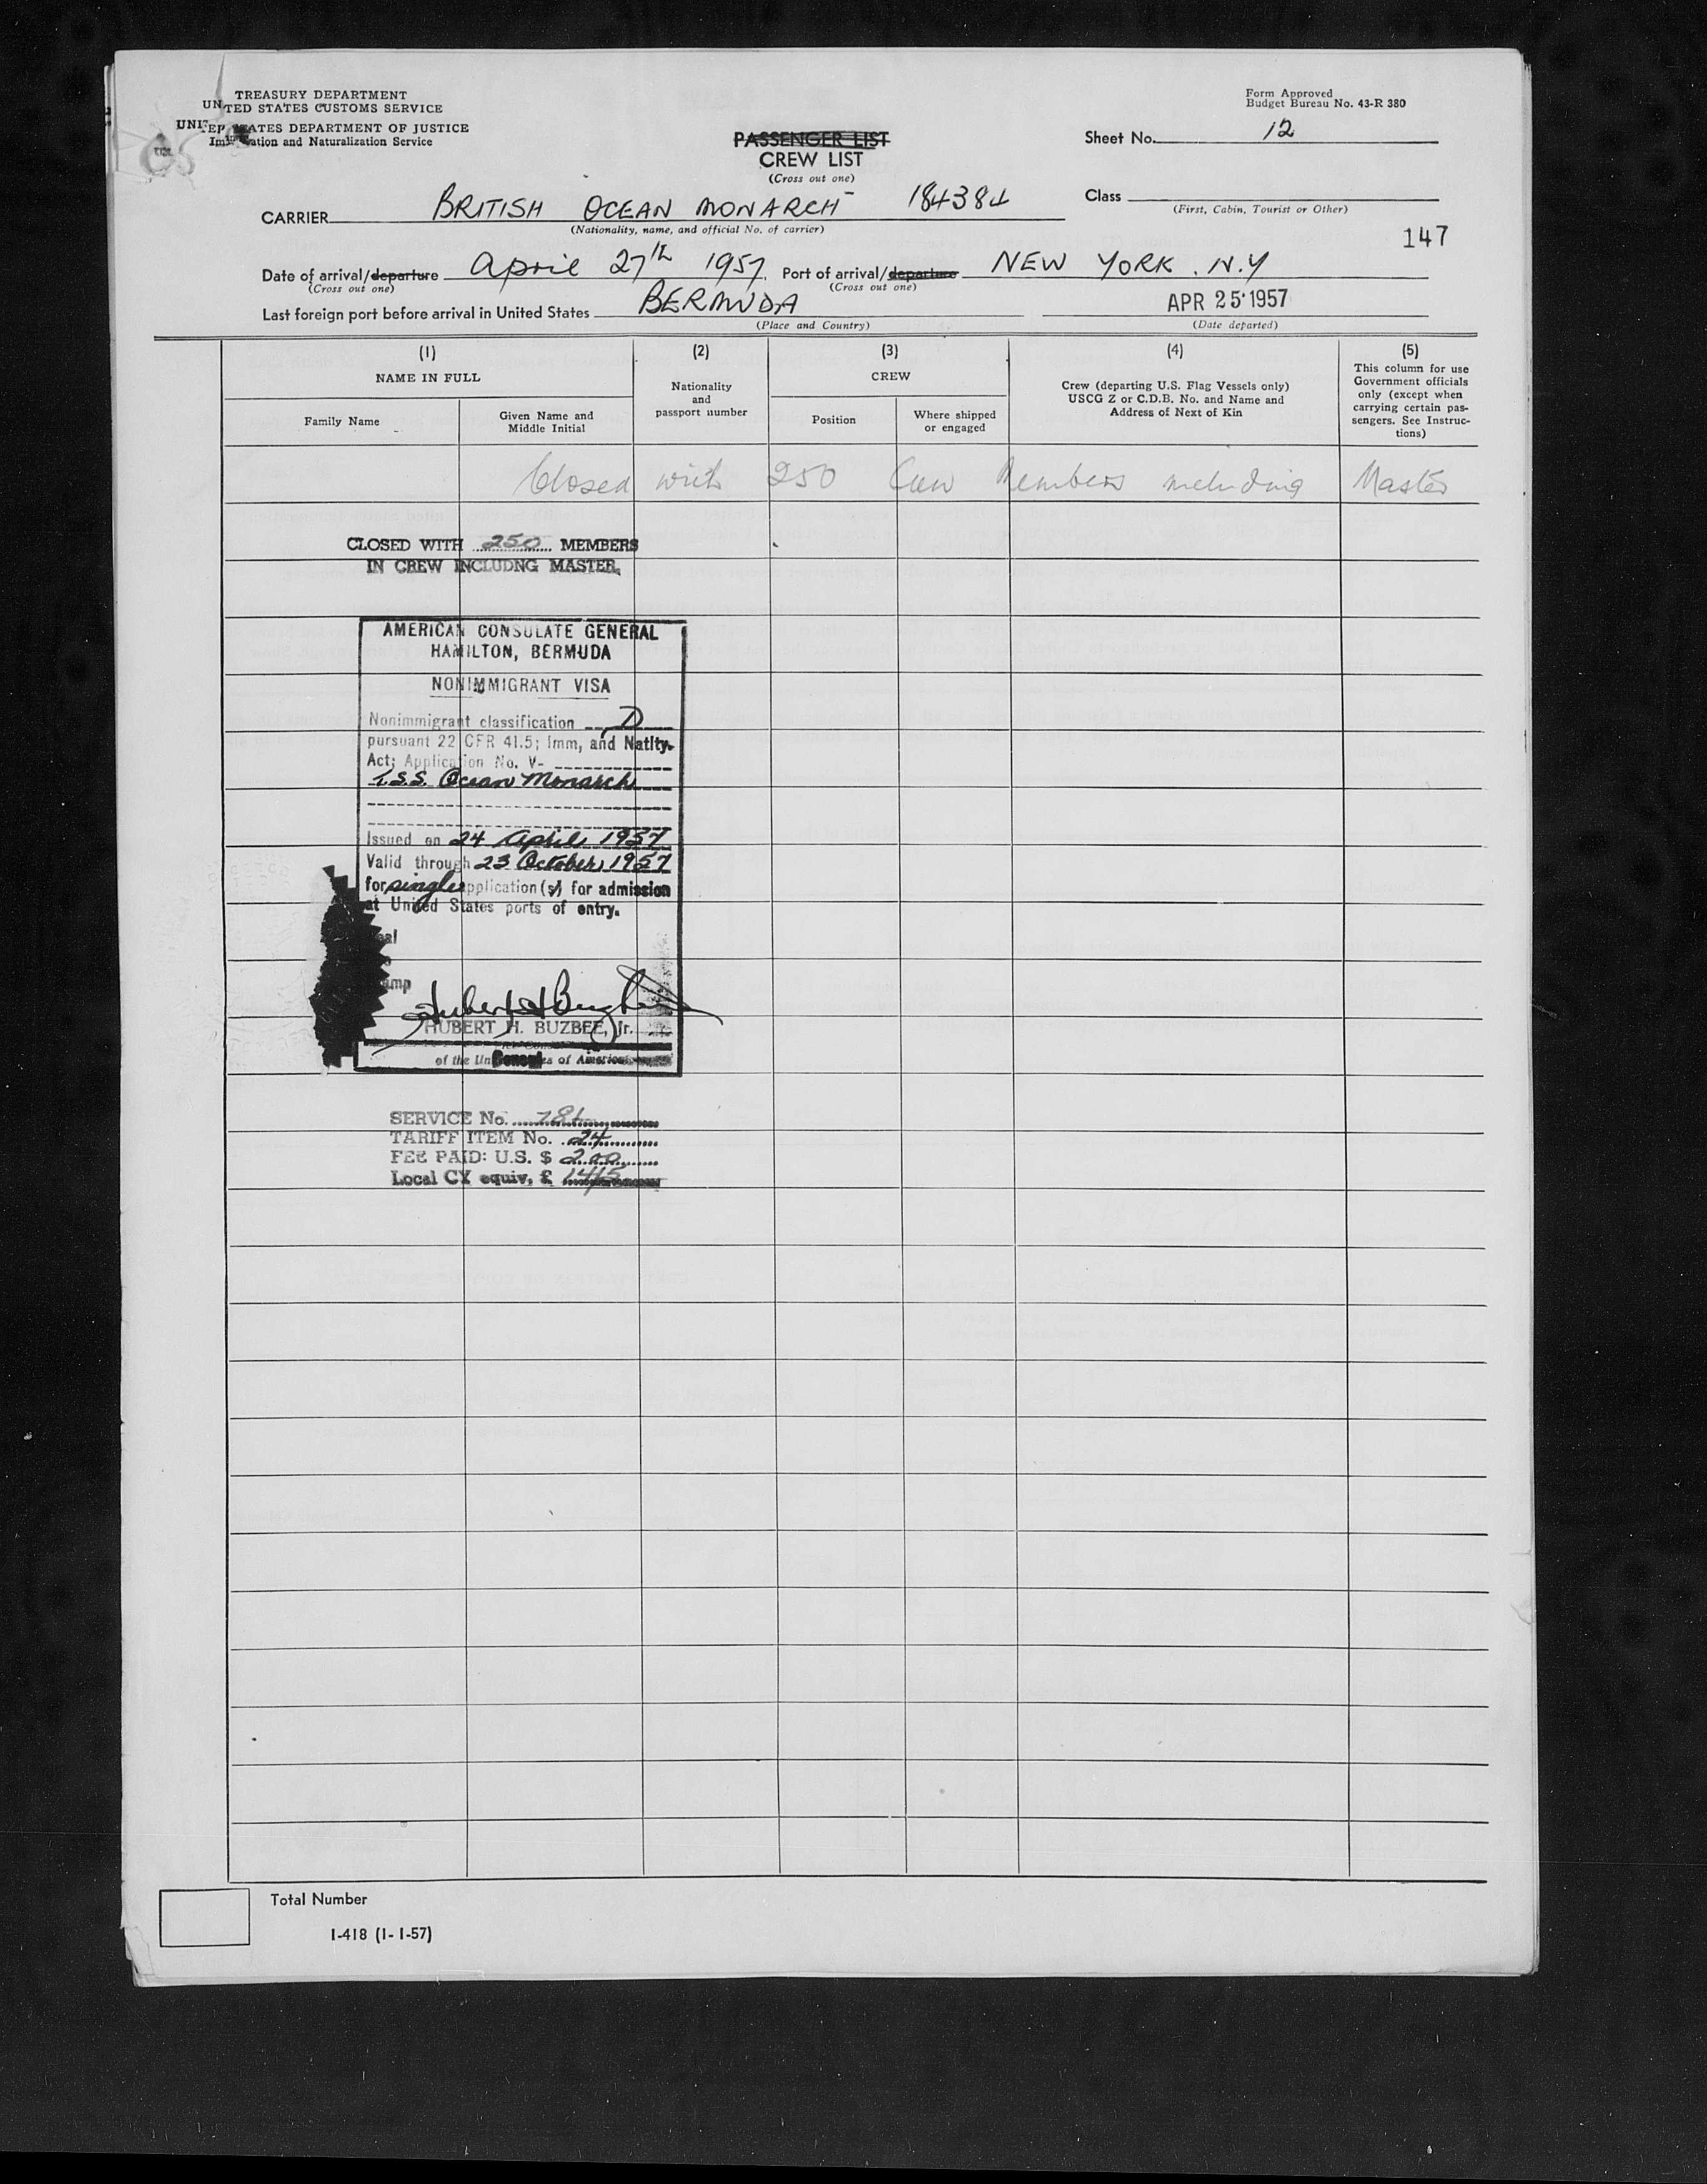 TREASURY DEPARTMENT
UNITED STATES CUSTOMS SERVICE
UNITED STATES DEPARTMENT OF JUSTICE
Immigration and Naturalization Service
Form Approved
Budget Bureau No. 43-R 380
PASSENGER LIST
CREW LIST
(Cross out one)
Sheet No. 12
CARRIER BRITISH OCEAN MONARCH - 184384
(Nationality, name, and official No. of carrier)
Class
(First, Cabin, Tourist or Other)
147
Date of arrival/departure April 27th 1957. Port of arrival/departure NEW YORK. N.Y
(Cross out one) (Cross out one)
Last foreign port before arrival in United States BERMUDA APR 25 1957
(Place and Country) (Date departed)
(1) (2) (3) (4) (5)
NAME IN FULL
Family Name
Given Name and
Middle Initial
Nationality
and
passport number
CREW
Position
Where shipped
or engaged
Crew (departing U.S. Flag Vessels only)
USCG Z or C.D.B. No. and Name and
Address of Next of Kin
This column for use
Government officials
only (except when
carrying certain pas-
sengers. See Instruc-
tions)
Closed with 250 Crew Members including Master
CLOSED WITH 250 MEMBERS
IN CREW INCLUDNG MASTER.
AMERICAN CONSULATE GENERAL
HAMILTON, BERMUDA
NONIMMIGRANT VISA
Nonimmigrant classification D
pursuant 22 CFR 41.5; Imm, and Natlty.
Act; Application No. V-
T.S.S. Ocean Monarch
Issued on 24 April 1957
Valid through 23 October 1957
for single application(s) for admission
at United States ports of entry.
HUBERT H. BUZBEE, Jr.
of the Un General es of America
SERVICE No.
TARIFF ITEM No. 24
FEE PAID: U.S. $ 2.00
Local CY equiv. £ 14/5
Total Number
I-418 (1-1-57)